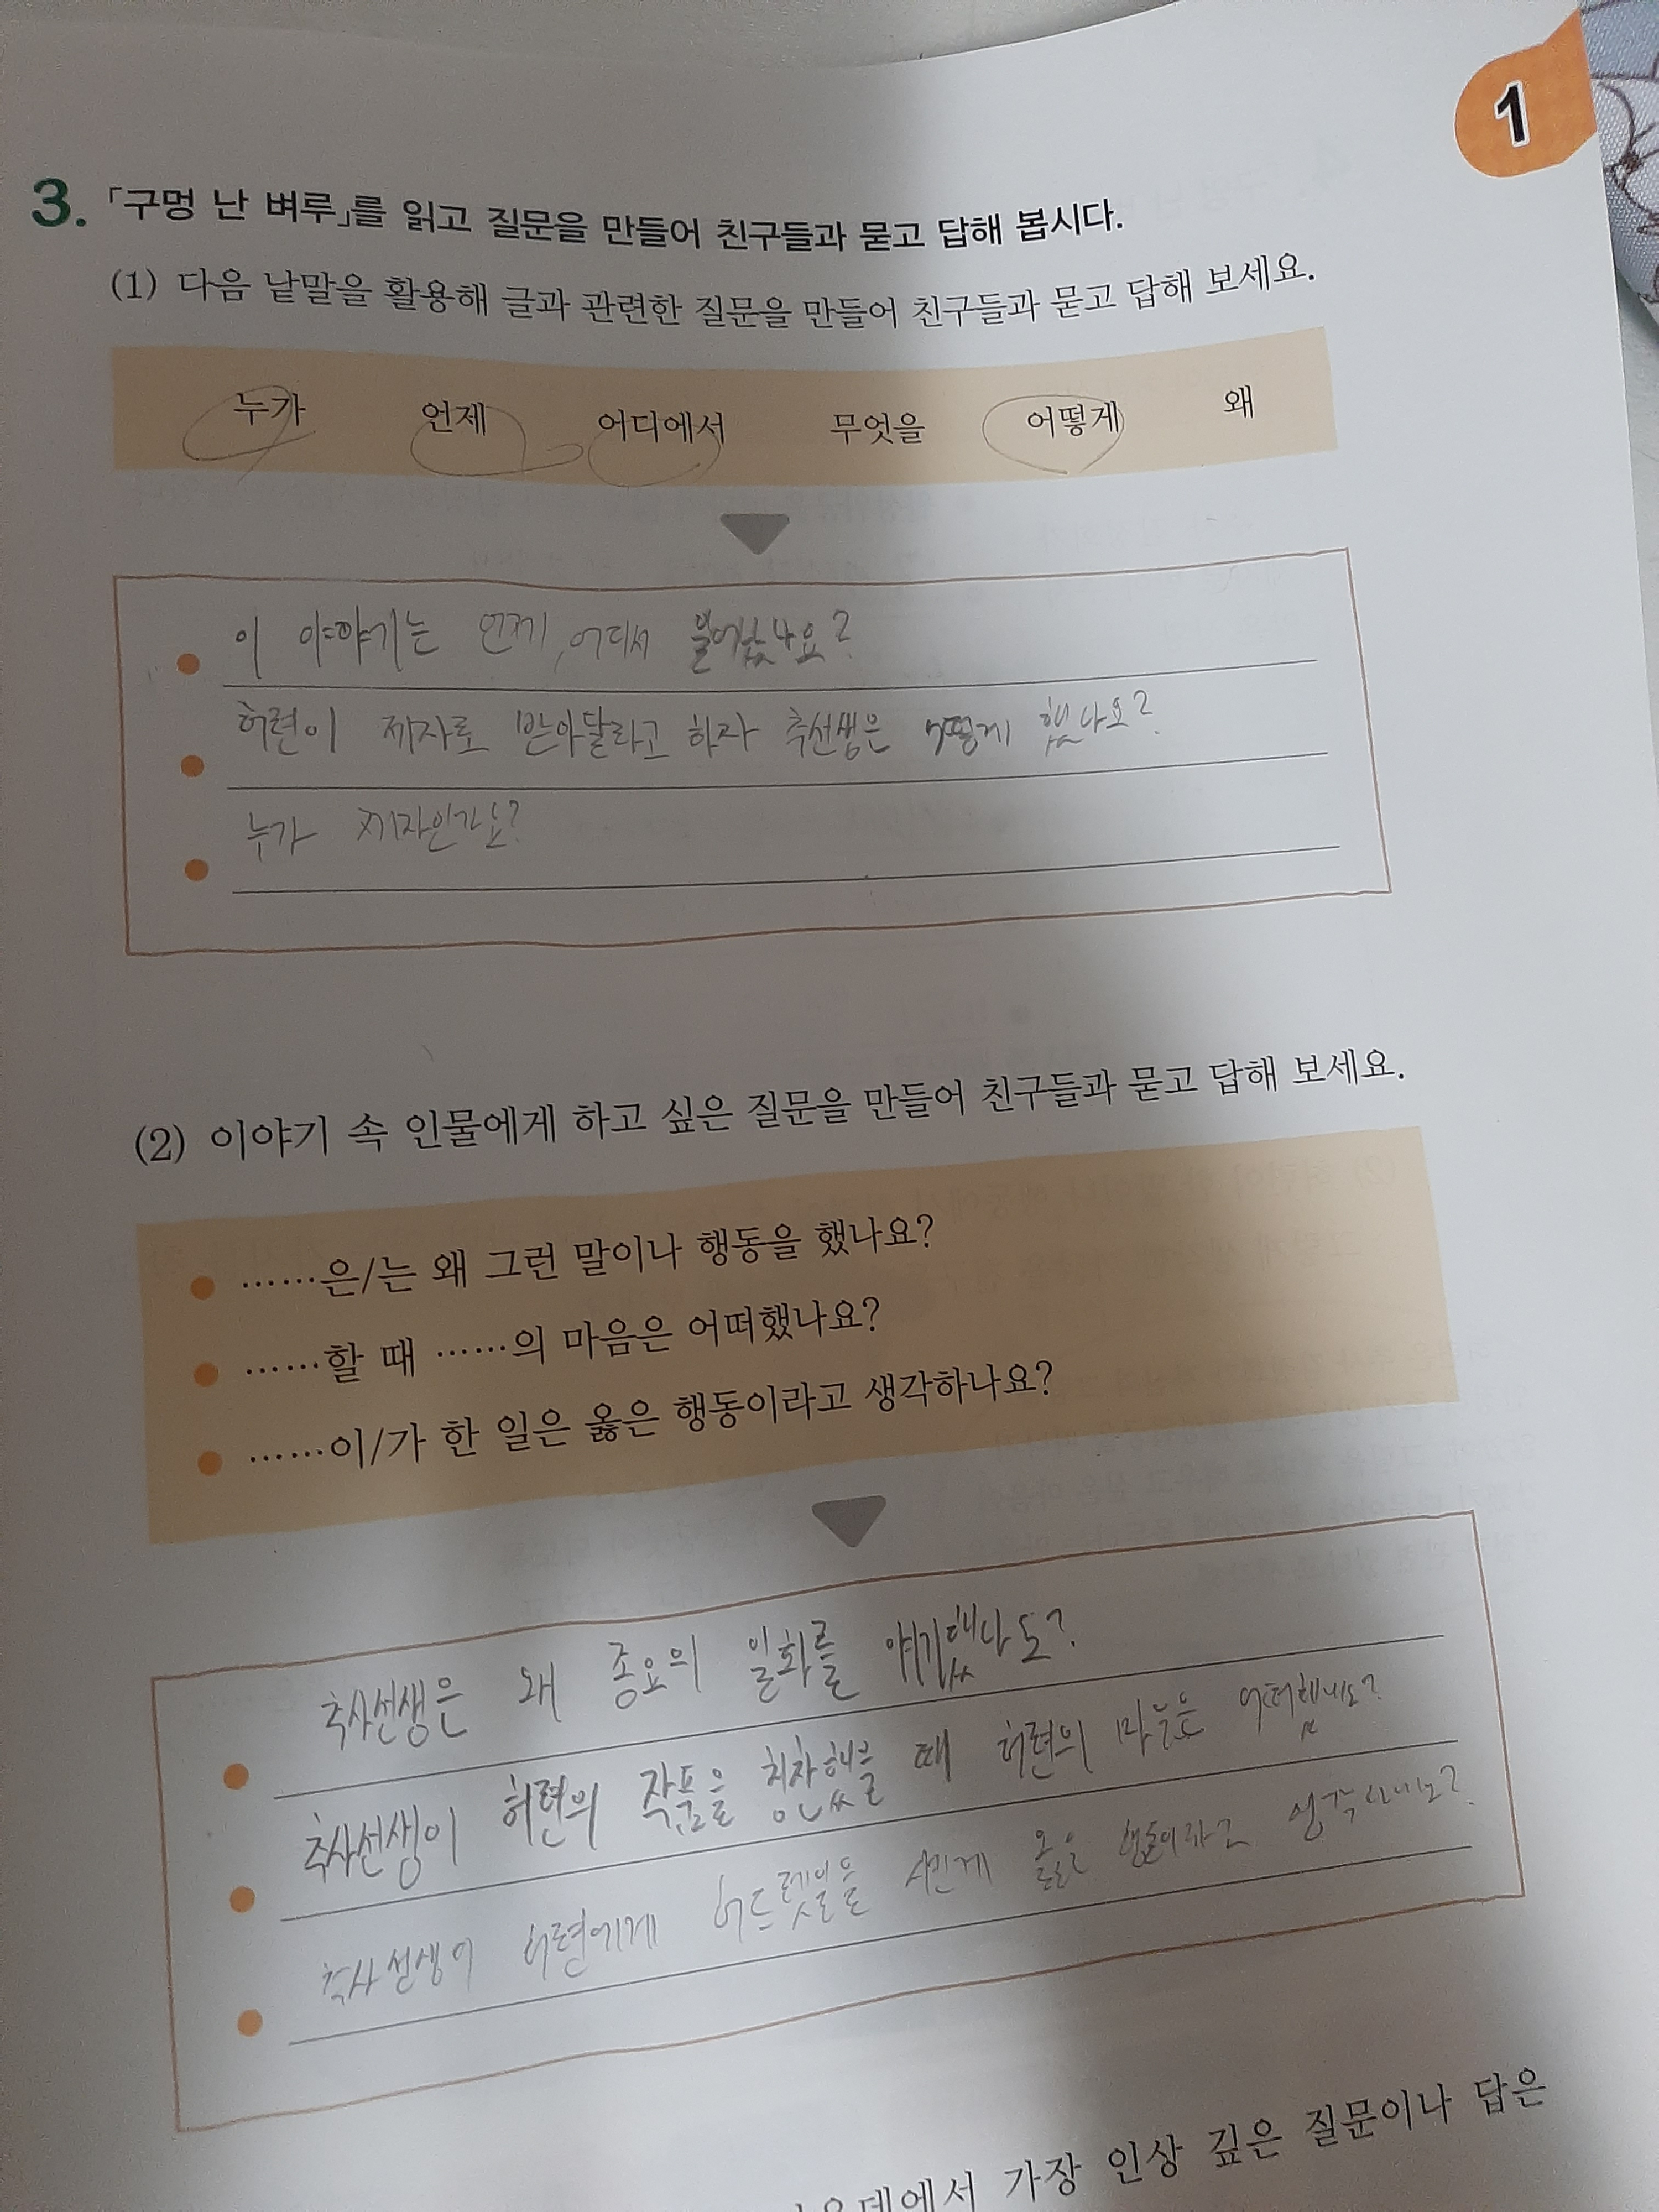 1
3. 「구멍 난 벼루」를 읽고 질문을 만들어 친구들과 묻고 답해 봅시다.
(1) 다음 낱말을 활용해 글과 관련한 질문을 만들어 친구들과 묻고 답해 보세요.
누가 언제 어디에서 무엇을 어떻게 왜
이 이야기는 언제, 어디서 일어났나요?
허련이 제자로 받아달라고 하자 추선생은 어떻게 했나요?
누가 제자인가요?
(2) 이야기 속 인물에게 하고 싶은 질문을 만들어 친구들과 묻고 답해 보세요.
● ……은/는 왜 그런 말이나 행동을 했나요?
● ……할 때 ……의 마음은 어떠했나요?
● ……이/가 한 일은 옳은 행동이라고 생각하나요?
추사선생은 왜 종요의 일화를 얘기했나요?
추사선생이 허련의 작품을 칭찬했을 때 허련의 마음은 어떠했나요?
추사선생이 허련에게 허드렛일을 시킨게 옳은 행동이라고 생각하나요?
가장 인상 깊은 질문이나 답은